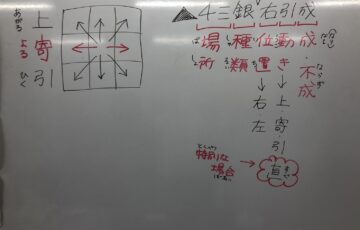 上 あがる
寄 よる
引 ひく
▲4三銀右引成
場所
種類
位置
動き
成・不成
右左
上・寄・引
特別な場合
直